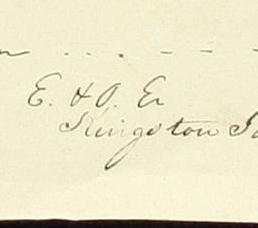 E. & O. E.
Kingston Ja